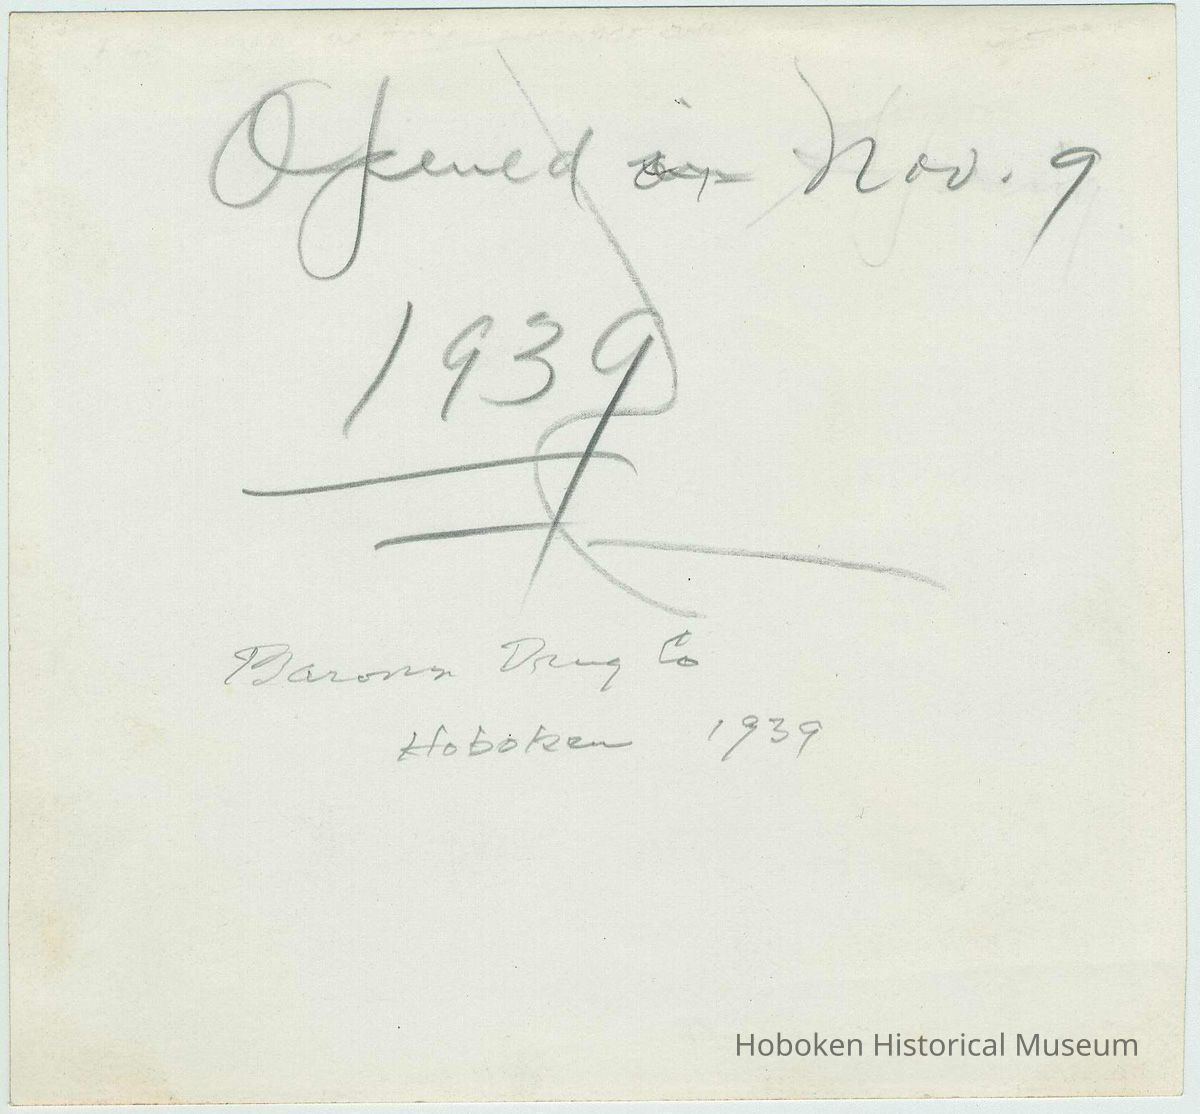 Opened in Nov. 9
1939
Barons Drug Co
Hoboken 1939
Hoboken Historical Museum